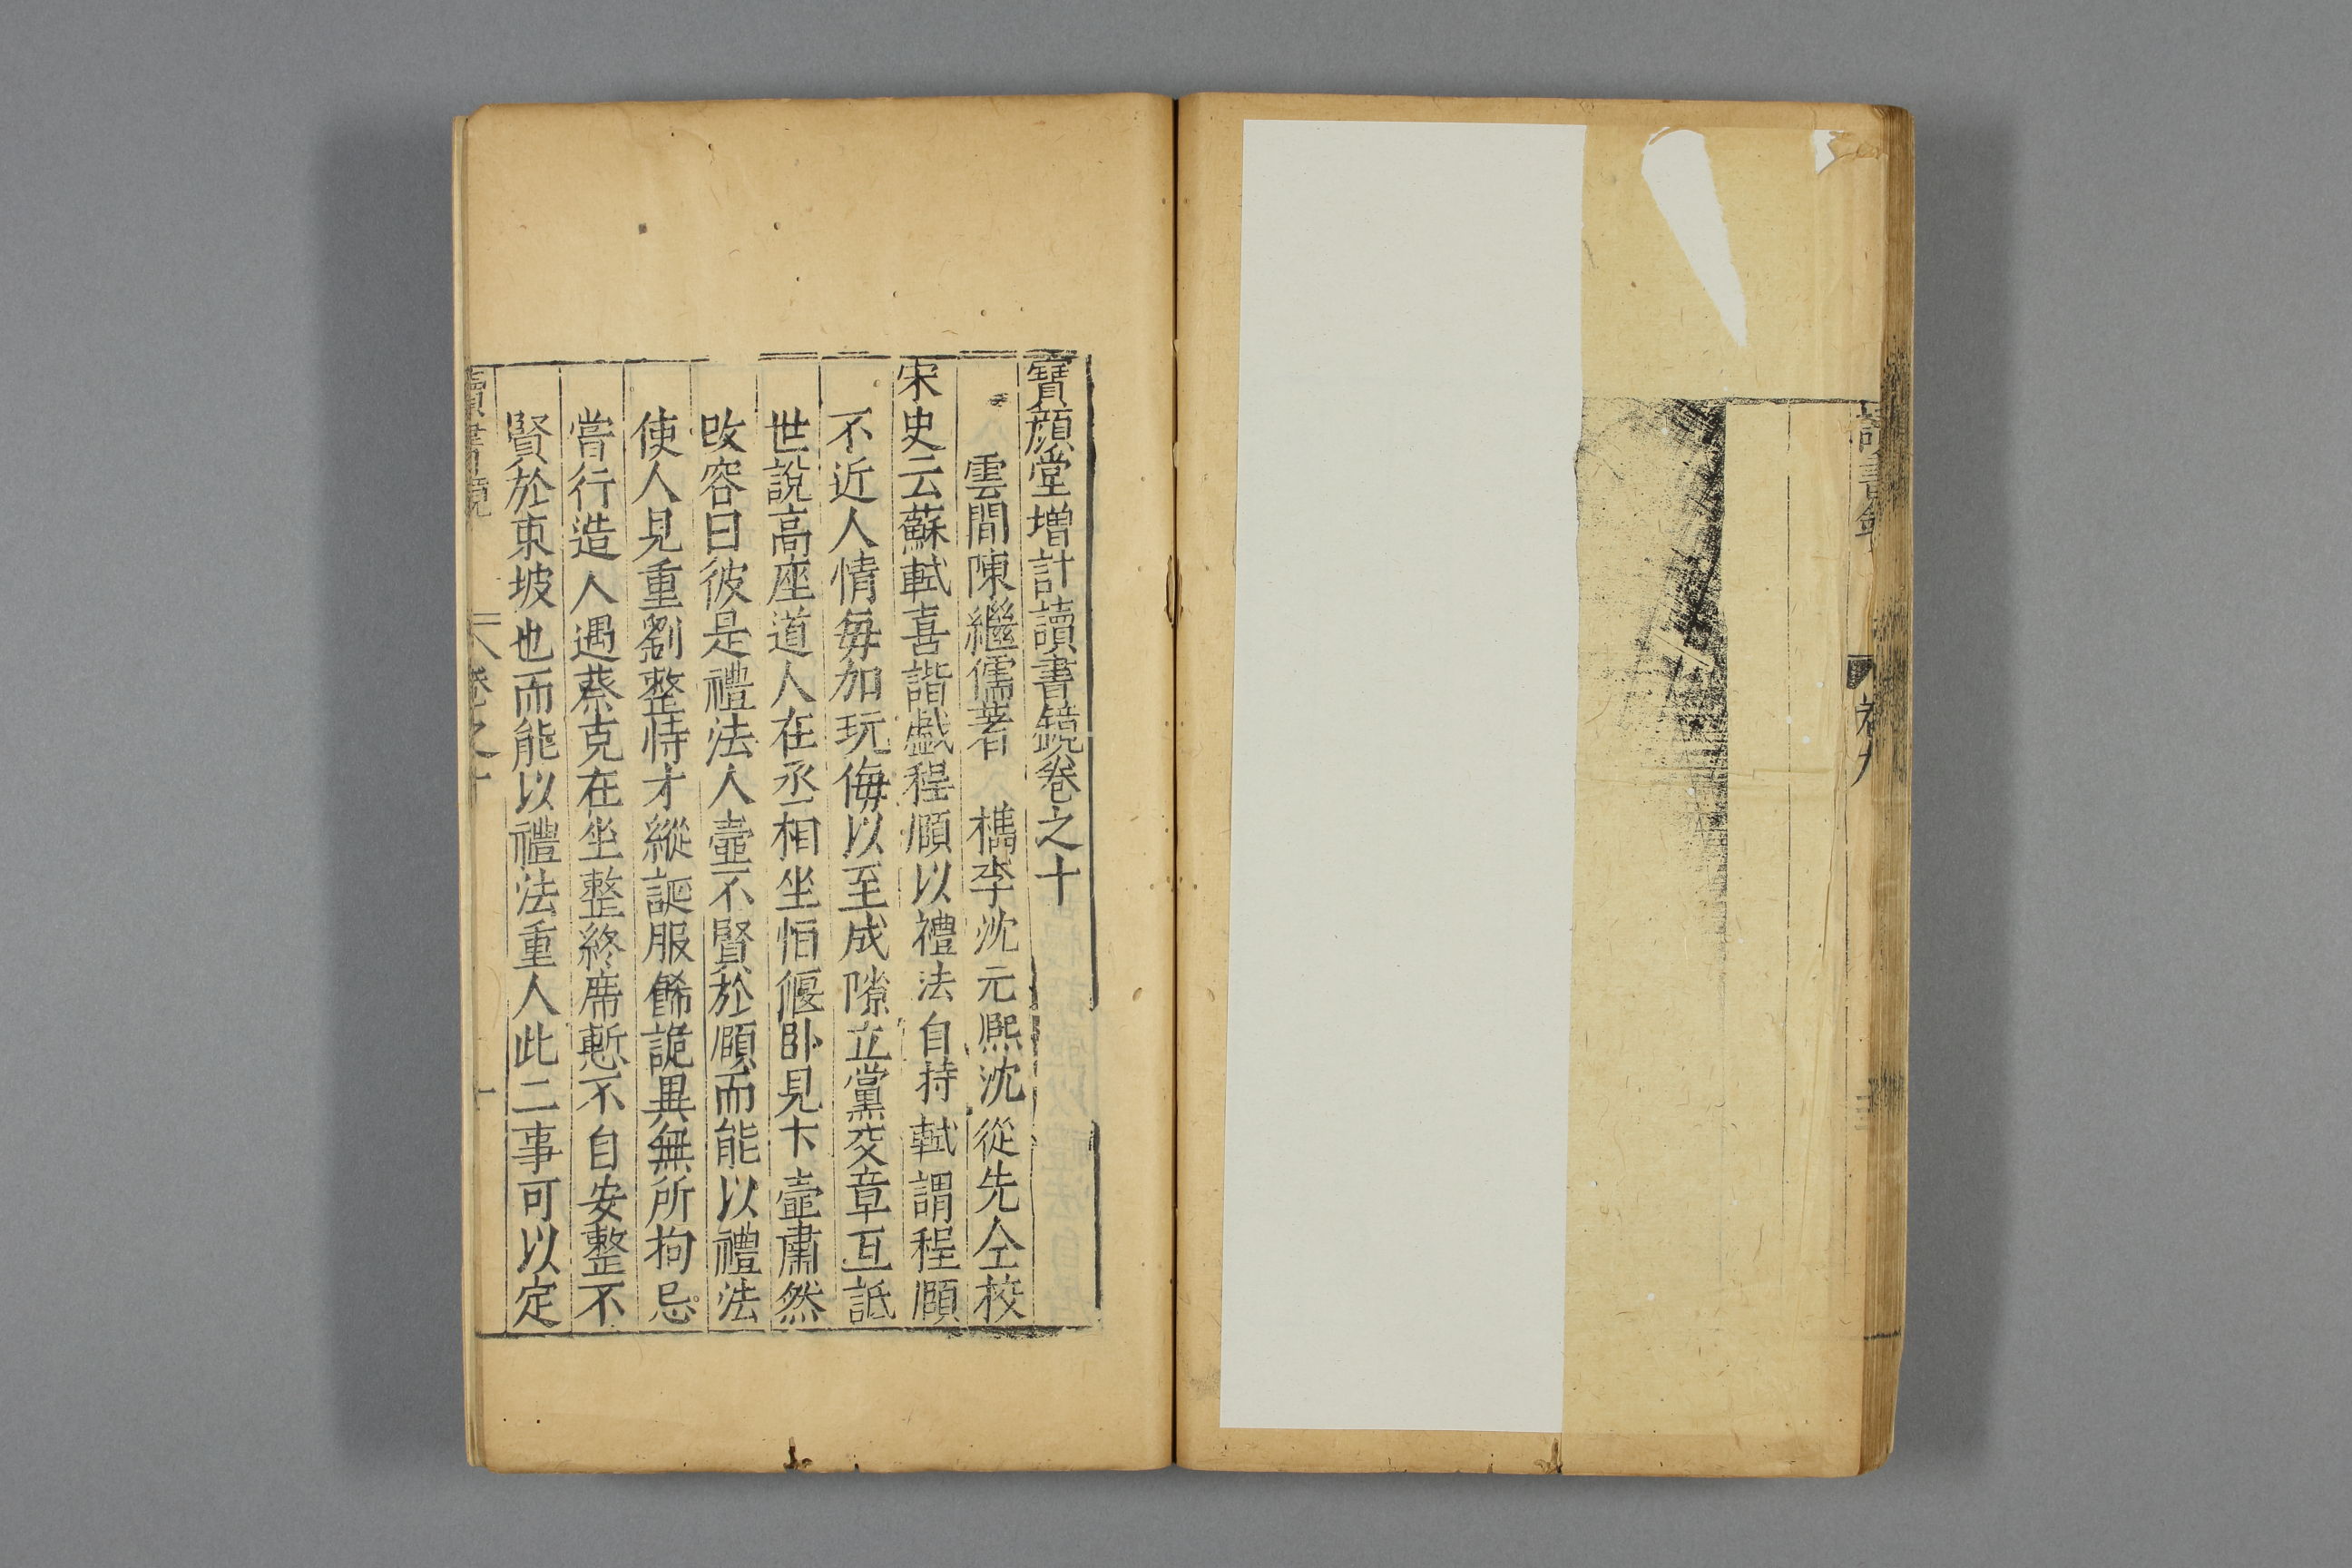 讀書鏡
卷九
寶顏堂增訂讀書鏡卷之十
雲間陳繼儒著 檇李沈元熙沈從先仝校
宋史云蘇軾喜諧戲程頤以禮法自持軾謂程頤
不近人情每加玩侮以至成隙立黨交章互詆
世說高座道人在丞相坐恒偃卧見卞壼肅然
改容曰彼是禮法人壼不賢於頤而能以禮法
使人見重劉整恃才縱誕服飾詭異無所拘忌
嘗行造人遇蔡克在坐整終席慙不自安整不
賢於東坡也而能以禮法重人此二事可以定
讀書鏡
卷之十
一